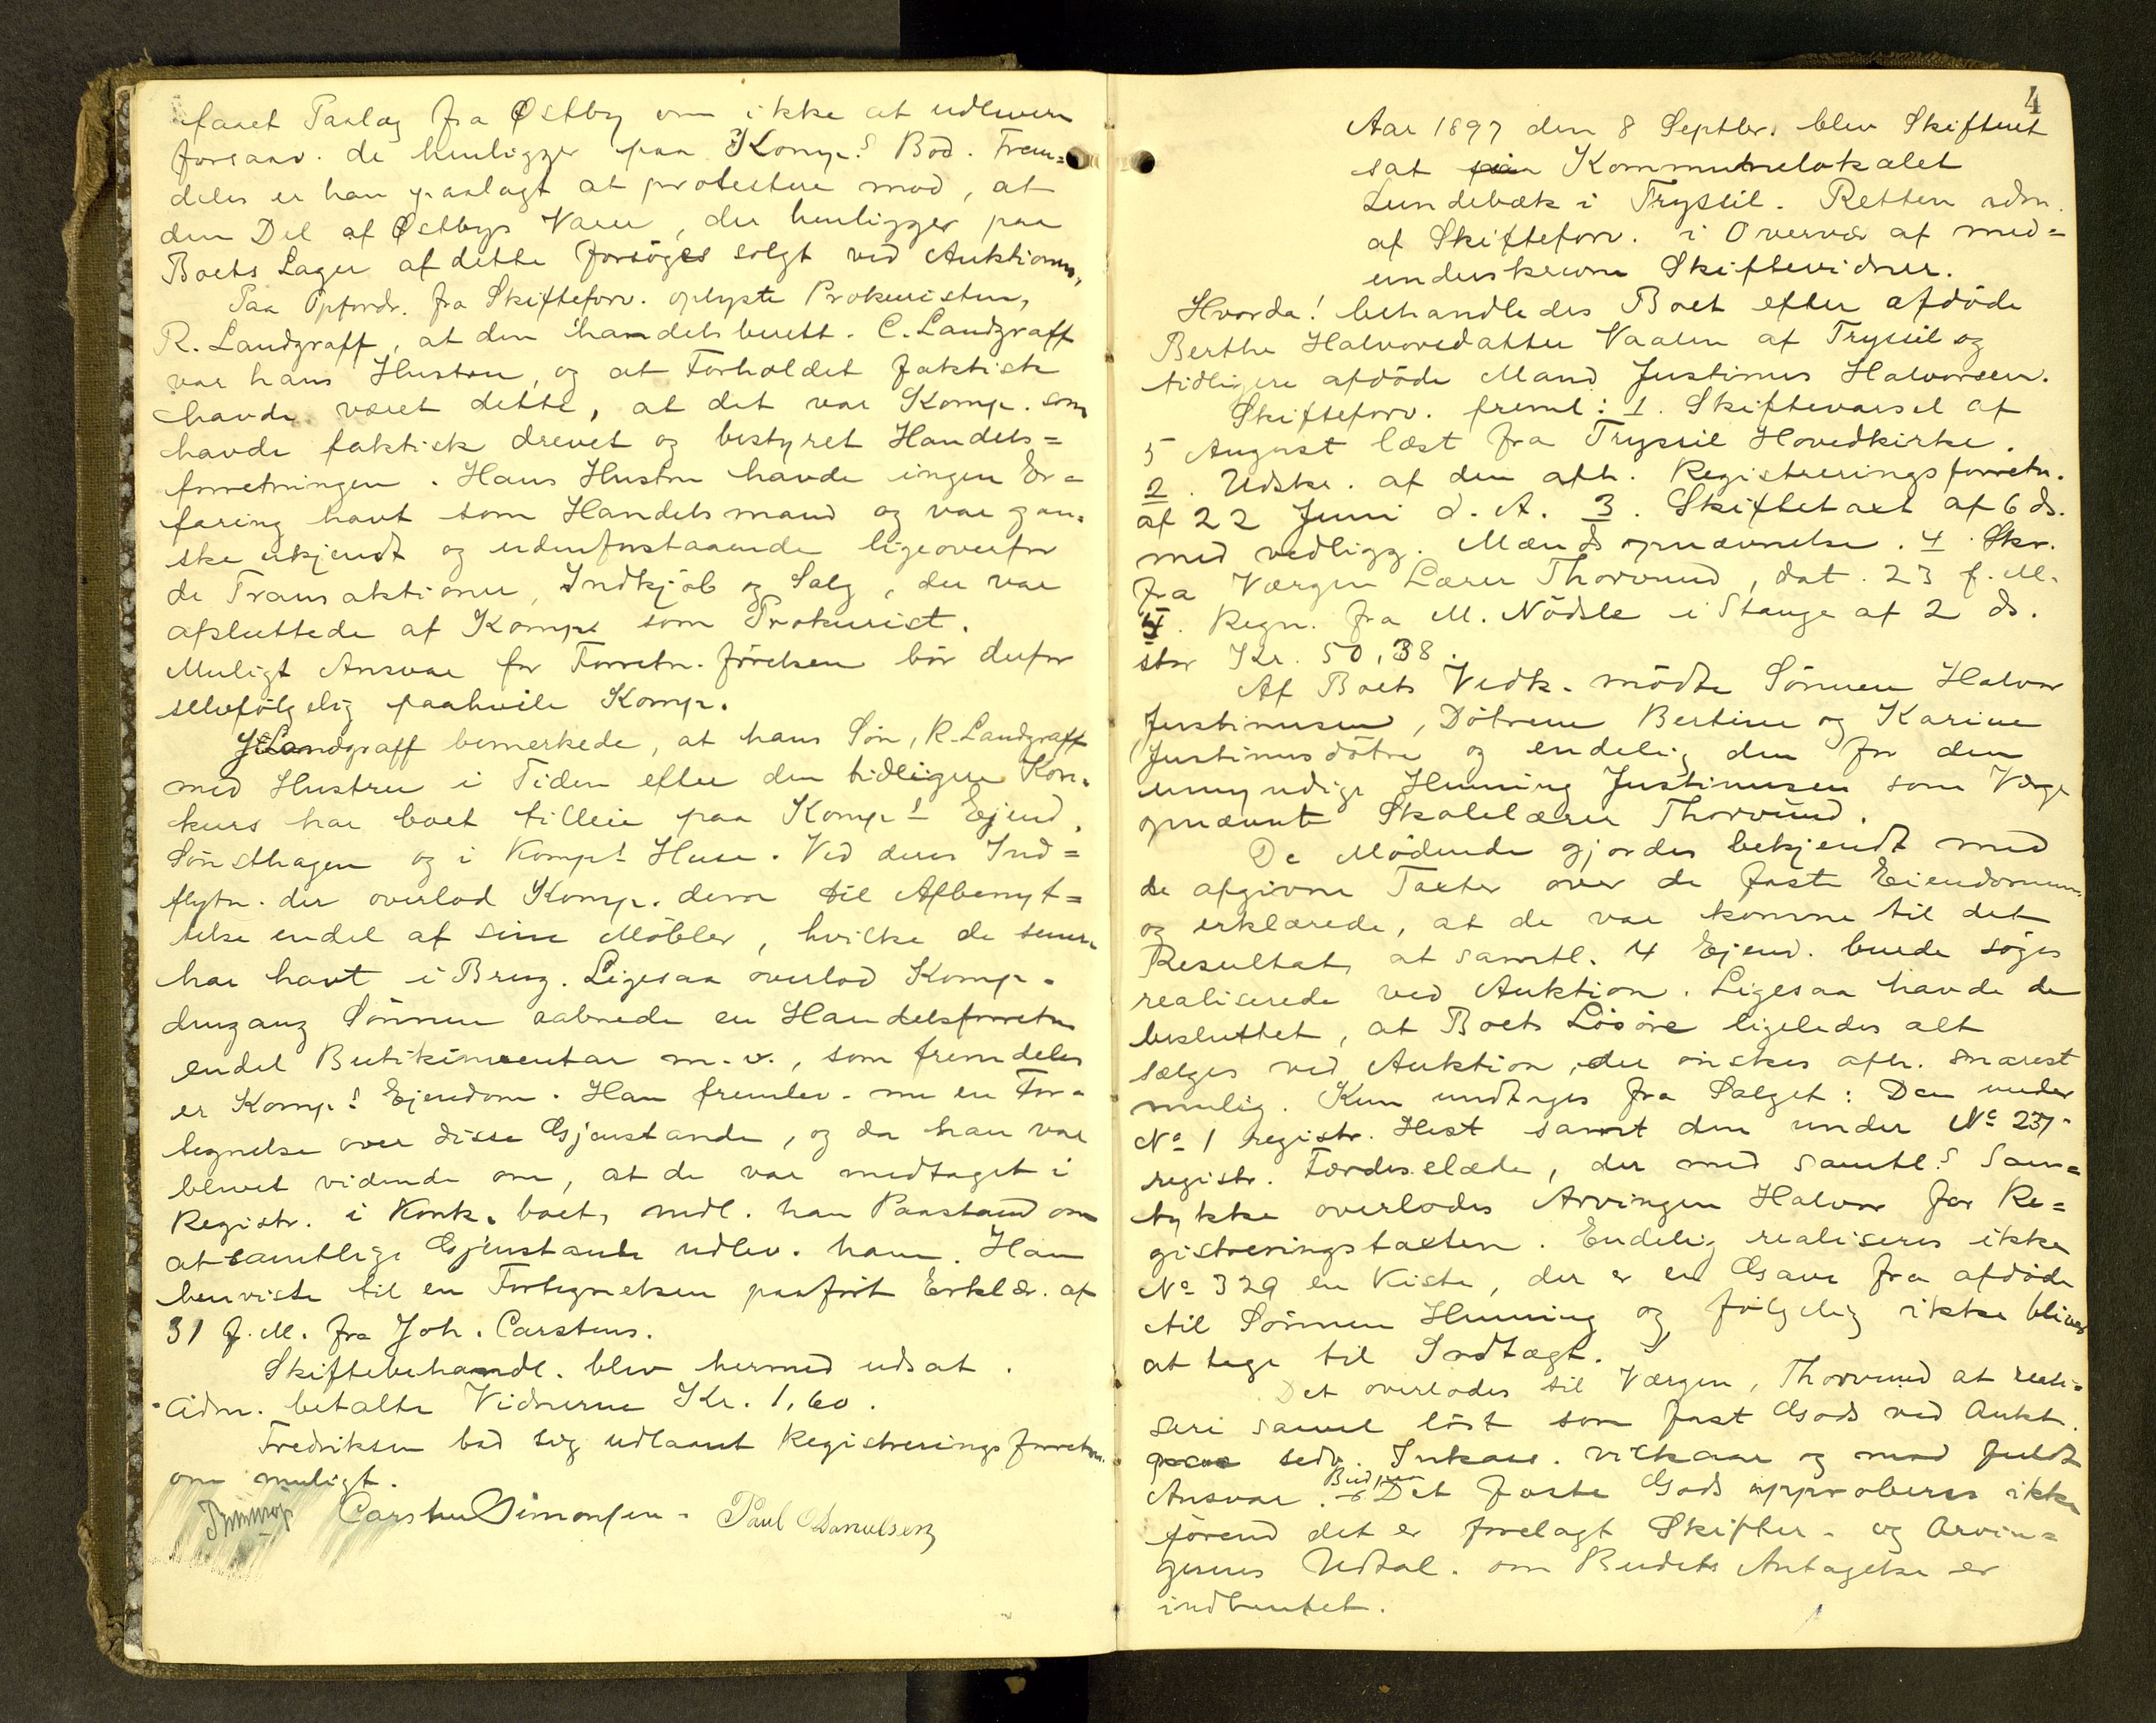 faaet Paalæg fra Østby om ikke at udlevere
forsaav. de henligger paa Komp.s Bod. Frem=
deles er han paalagt at protestere mod, at
den Del af Østbys Varer, der henligger paa
Boets Lager af dette forsøges solgt ved Auktionen.
Paa Opfordr. fra Skifteforv. oplyste Prokuristen,
R. Landgraff, at den handelsberett. C. Landgraff
var hans Hustru, og at Forholdet faktisk
havde været dette, at det var Komp. som
havde faktisk drevet og bestyret Handels=
forretningen. Hans Hustru havde ingen Er=
faring havt som Handelsmand og var gan=
ske ukjendt og udenforstaaende ligeoverfor
de Transaktioner, Indkjöb og Salg, der var
afsluttede af Komp. som Prokurist.
Muligt Ansvar for Forretn. förelsen bör derfor
selvfölgelig paahvile Komp.
J. Landgraff bemerkede, at hans Sön, R. Landgraff
med Hustru i Tiden efter den tidligere Kon=
kurs har boet tilleie paa Komp.s Ejend.
Sönsthagen og i Komp.s Huse. Ved deres Ind=
flytn. der overlod Komp. dem til Afbenyt=
telse endel af sine Möbler, hvilke de senere
har havt i Brug. Ligesaa overlod Komp.
dengang Sönnen aabnede en Handelsforretn.
endel Butikinventar m. v., som fremdeles
er Komp.s Ejendom. Han fremlev. nu en For=
tegnelse over disse Gjenstande, og da han var
blevet vidende om, at de var medtaget i
Registr. i Konk. boet, nedl. han Paastand om
at samtlige Gjenstande udlev. ham. Han
henviste til en Fortegnelsen paafört Erklær. af
31 f. M. fra Joh. Carstens.
Skiftebehandl. blev hermed udsat.
Adm. betalte Vidnerne Kr. 1,60.
Fredriksen bad sig udlaant Registreringsforretn.
om muligt.
Carsten Simonsen - Paul Danielsen
4
Aar 1897 den 8 Septbr. blev Skifteret
sat paa Kommunelokalet
Lundebæk i Trysil. Retten adm.
af Skifteforv. i Overvær af med=
underskrevne Skiftevidner.
Hvorda! behandledes Boet efter afdöde
Berthe Halvorsdatter Vaalen af Trysil og
tidligere afdöde Mand Justinus Halvorsen.
Skifteforv. freml: 1. Skiftevarsel af
5 August læst fra Trysil Hovedkirke.
2. Udskr. af den afh. Registreringsforretn.
af 22 Juni d. A. 3. Skiftetaxt af 6 ds.
med vedligg. Mændsopnævnelse. 4. Skr.
fra Værgen Lærer Thorvund, dat. 23 f. M.
5. Regn. fra M. Nödsle i Stange af 2 ds.
stor Kr. 50,38.
Af Boets Vedk. mödte Sönnen Halvor
Justinusen, Dötrene Bertine og Karine
Justinusdötre og endelig den for den
umyndige Henning Justinusen som Værge
opnævnte Skolelærer Thorvund.
De Mödende gjordes bekjendt med
de afgivne Taxter over de faste Eiendomme
og erklærede, at de var komne til det
Resultat, at samtl. 4 Ejend. burde söges
realiserede ved Auktion. Ligesaa havde de
besluttet, at Boets Lösöre ligeledes alt
sælges ved Auktion, der önskes afh. snarest
mulig. Kun undtages fra Salget: Den under
No 1 registr. Hest samt den under No 237
registr. Færdesslæde, der med samtl.s Sam=
tykke overlodes Arvingen Halvor for Re=
gistreringstaxten. Endelig realiseres ikke
No 329 en Kiste, der er en Gave fra afdöde
til Sönnen Henning og fölgelig ikke bliver
at tage til Indtægt.
Det overlodes til Værgen, Thorvund at reali=
sere samel löst som fast Gods ved Aukt.
paa sedv. Inkass. vilkaar og med fuldt
Ansvar. Bud paa Det faste Gods approberes ikke
förend det er forelagt Skifter. og Arvin=
gernes Udtal. om Budets Antagelse er
indhentet.